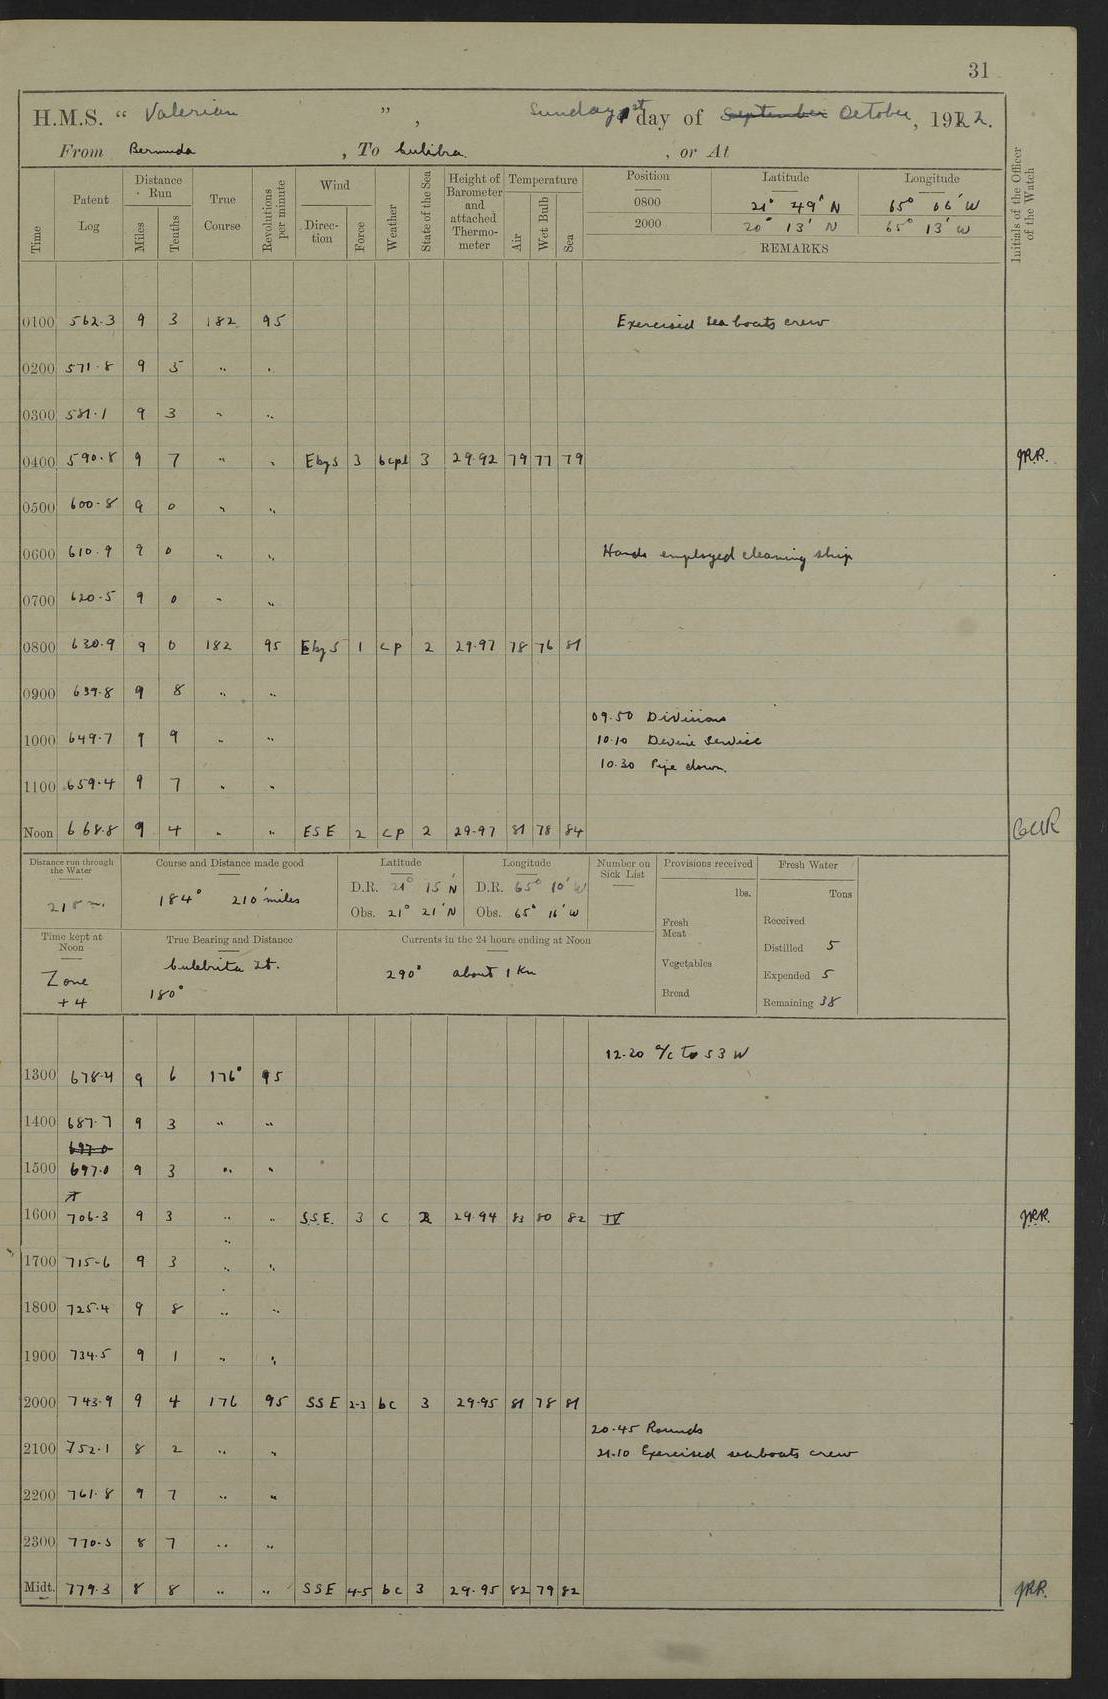 31
H.M.S. “ Valerian ” , Sunday 1st day of September October, 1922.
From Bermuda , To Culebra. , or At
Time Patent Log Distance Run Miles Tenths True Course Revolutions per minute Wind Direction Force Weather State of the Sea Height of Barometer and attached Thermometer Temperature Air Wet Bulb Sea Position Latitude Longitude Initials of the Officer of the Watch
0800 21° 49' N 65° 06' W
2000 20° 13' N 65° 13' W
REMARKS
0100 562.3 9 3 182 95 Exercised sea boats crew
0200 571.8 9 5 " "
0300 581.1 9 3 " "
0400 590.8 9 7 " " EbyS 3 bcpl 3 29.92 79 77 79 JRR.
0500 600.8 9 0 " "
0600 610.9 9 0 " " Hands employed cleaning ship
0700 620.5 9 0 " "
0800 630.9 9 0 182 95 EbyS 1 cp 2 29.97 78 76 81
0900 639.8 9 8 " "
09.50 Divisions
1000 649.7 9 9 " " 10.10 Devine Service
10.30 Pipe down.
1100 659.4 9 7 " "
Noon 668.8 9 4 " " ESE 2 cp 2 29.97 81 78 84
Distance run through the Water Course and Distance made good Latitude Longitude Number on Sick List Provisions received Fresh Water
218 m. 184° 210 miles D.R. 21° 15' N D.R. 65° 10' W lbs. Tons
Obs. 21° 21' N Obs. 65° 16' W Fresh Meat Received
Time kept at Noon True Bearing and Distance Currents in the 24 hours ending at Noon Distilled 5
Zone +4 Culebrita Lt. 180° 290° about 1 Kn Vegetables Expended 5
Bread Remaining 38
12.20 a/c to S3W
1300 678.4 9 6 176° 95
1400 687.7 9 3 " "
697.0
1500 697.0 9 3 " "
1600 706.3 9 3 " " S.S.E. 3 c 2 29.94 83 80 82 IV JRR.
1700 715.6 9 3 " "
1800 725.4 9 8 " "
1900 734.5 9 1 " "
2000 743.9 9 4 176 95 SSE 2-3 bc 3 29.95 81 78 81
20.45 Rounds
2100 752.1 8 2 " " 21.10 Exercised seaboats crew
2200 761.8 9 7 " "
2300 770.5 8 7 " "
Midt. 779.3 8 8 " " SSE 4-5 bc 3 29.95 82 79 82 JRR.